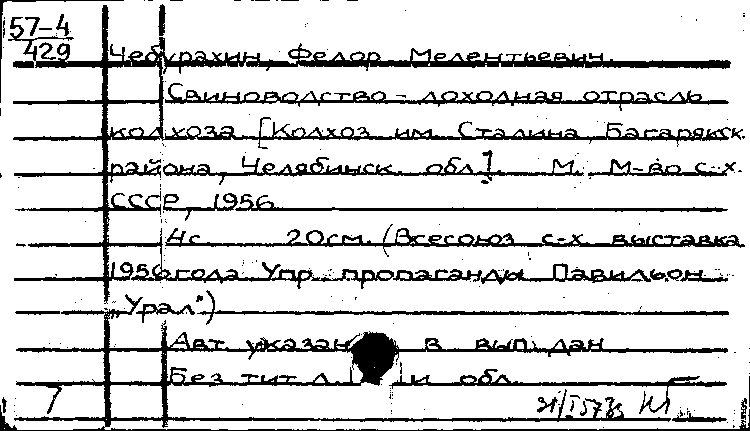 57-4
429
Чебурахин, Федор Мелентьевич.
Свиноводство - доходная отрасль
колхоза [Колхоз им. Сталина, Багарякск.
района, Челябинск. обл.]. М., М-во с.-х.
СССР, 1956
4с. 20см. (Всесоюз. с-х. выставка
1956 года. Упр. пропаганды. Павильон
„Урал“)
Авт. указан в вып. дан.
Без тит. л. и обл.
7